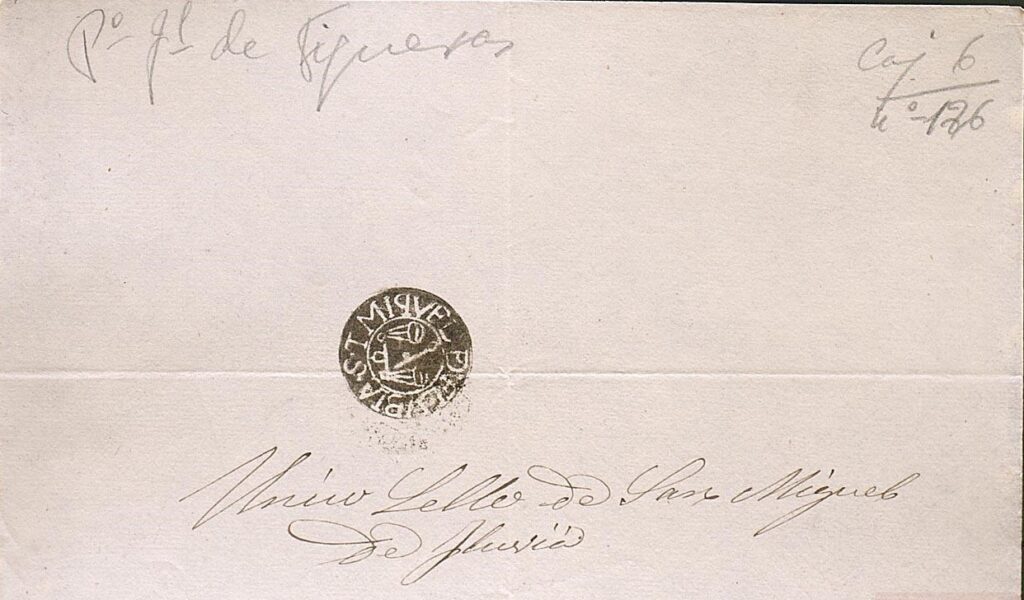 Pº Jl de Figueras
Caj. 6
nº 126
S·T MIQVEL DE
Unico Sello de San Miguel
de Fluviá